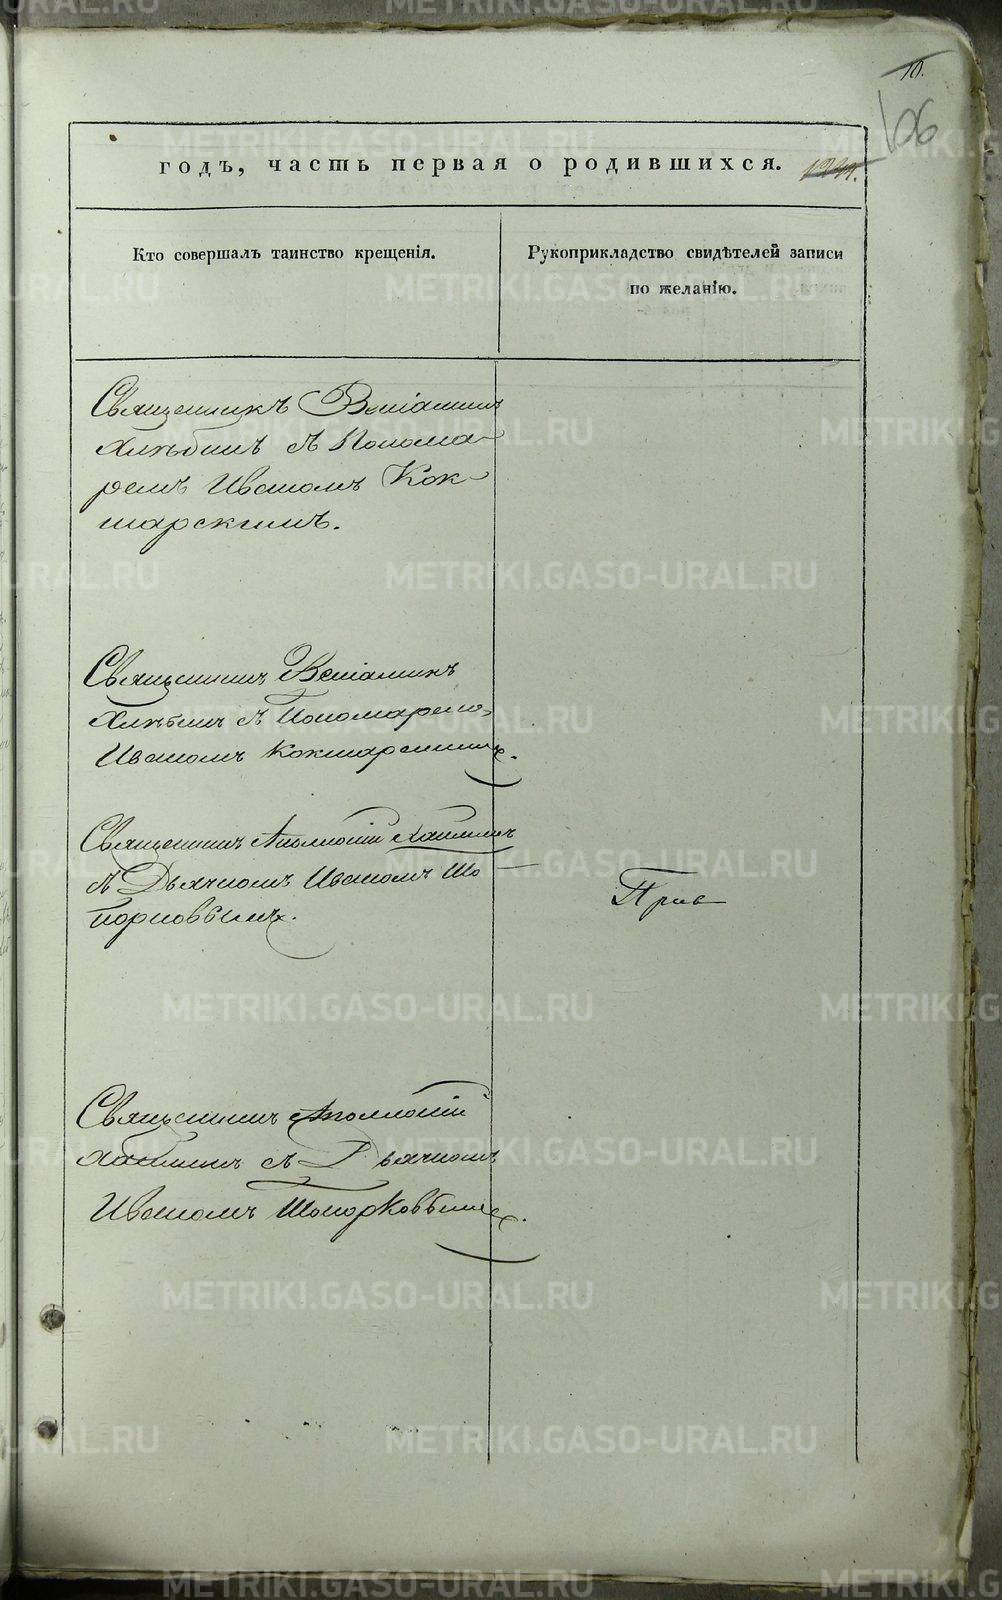 10.
106
годъ, часть первая о родившихся.
Кто совершалъ таинство крещенія.
Рукоприкладство свидѣтелей записи
по желанію.
Священникъ Веніаминъ
Хлѣбинъ съ Понома-
ремъ Иваномъ Кок-
шарскимъ.
Священникъ Веніаминъ
Хлѣбинъ съ Пономаремъ
Иваномъ Кокшарскимъ.
Священникъ Аполлоній
съ Дьячкомъ Иваномъ То
порковымъ.
Священникъ Аполлоній
съ Дьячкомъ
Иваномъ Топорковымъ.
METRIKI.GASO-URAL.RU